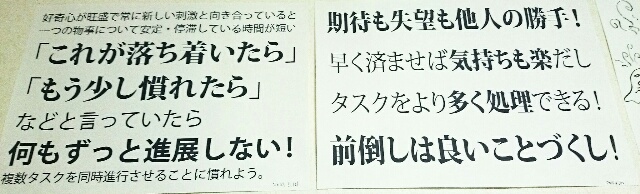 好奇心が旺盛で常に新しい刺激と向き合っていると
一つの物事について安定・停滞している時間が短い
「これが落ち着いたら」
「もう少し慣れたら」
などと言っていたら
何もずっと進展しない!
複数タスクを同時進行させることに慣れよう。
期待も失望も他人の勝手!
早く済ませば気持ちも楽だし
タスクをより多く処理できる!
前倒しは良いことづくし!